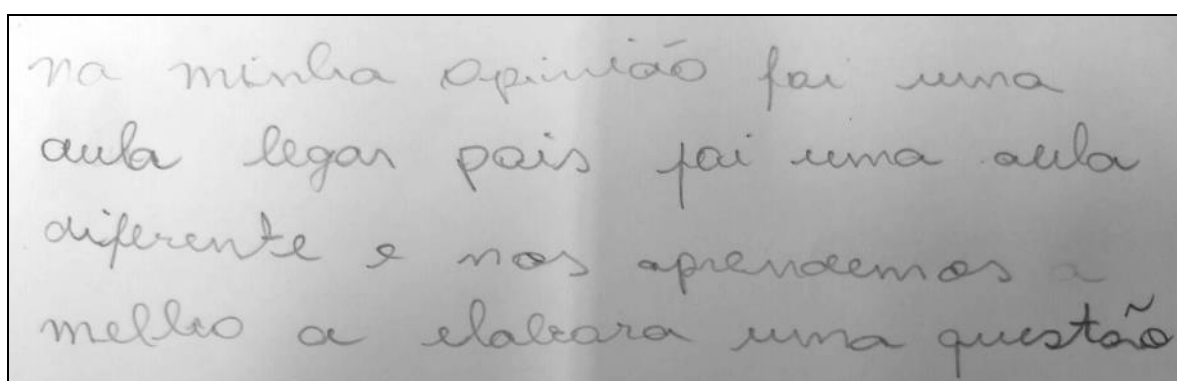 na minha opinião foi uma
aula legar pois foi uma aula
diferente e nos aprendemos a
melhro a elabrara uma questão